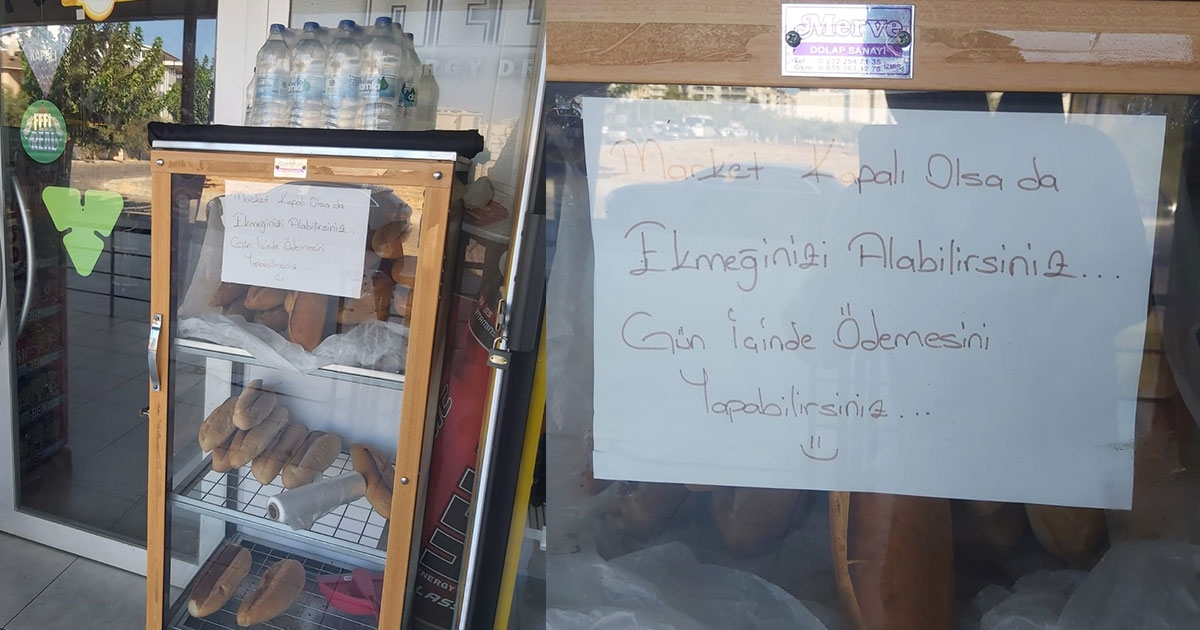 KAPALI
ENERGY DR
Market Kapalı Olsa da
Ekmeğinizi Alabilirsiniz...
Gün İçinde Ödemesini
Yapabilirsiniz...
ENERGY
CLASS
Merve
DOLAP SANAYİ
Market Kapalı Olsa da
Ekmeğinizi Alabilirsiniz...
Gün İçinde Ödemesini
Yapabilirsiniz...